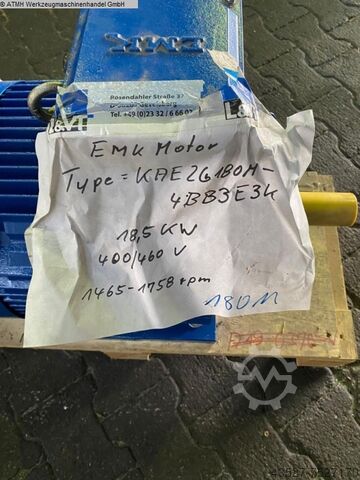 © ATMH Werkzeugmaschinenhandel GmbH
EMK
Rosendahler Straße 37
Tel. +49 (0)23 32 / 6 66 02
EMK Motor
Type = KAE2G180M-
4BB3E3K
18,5 KW
400/460 V
1465-1758 rpm
180M